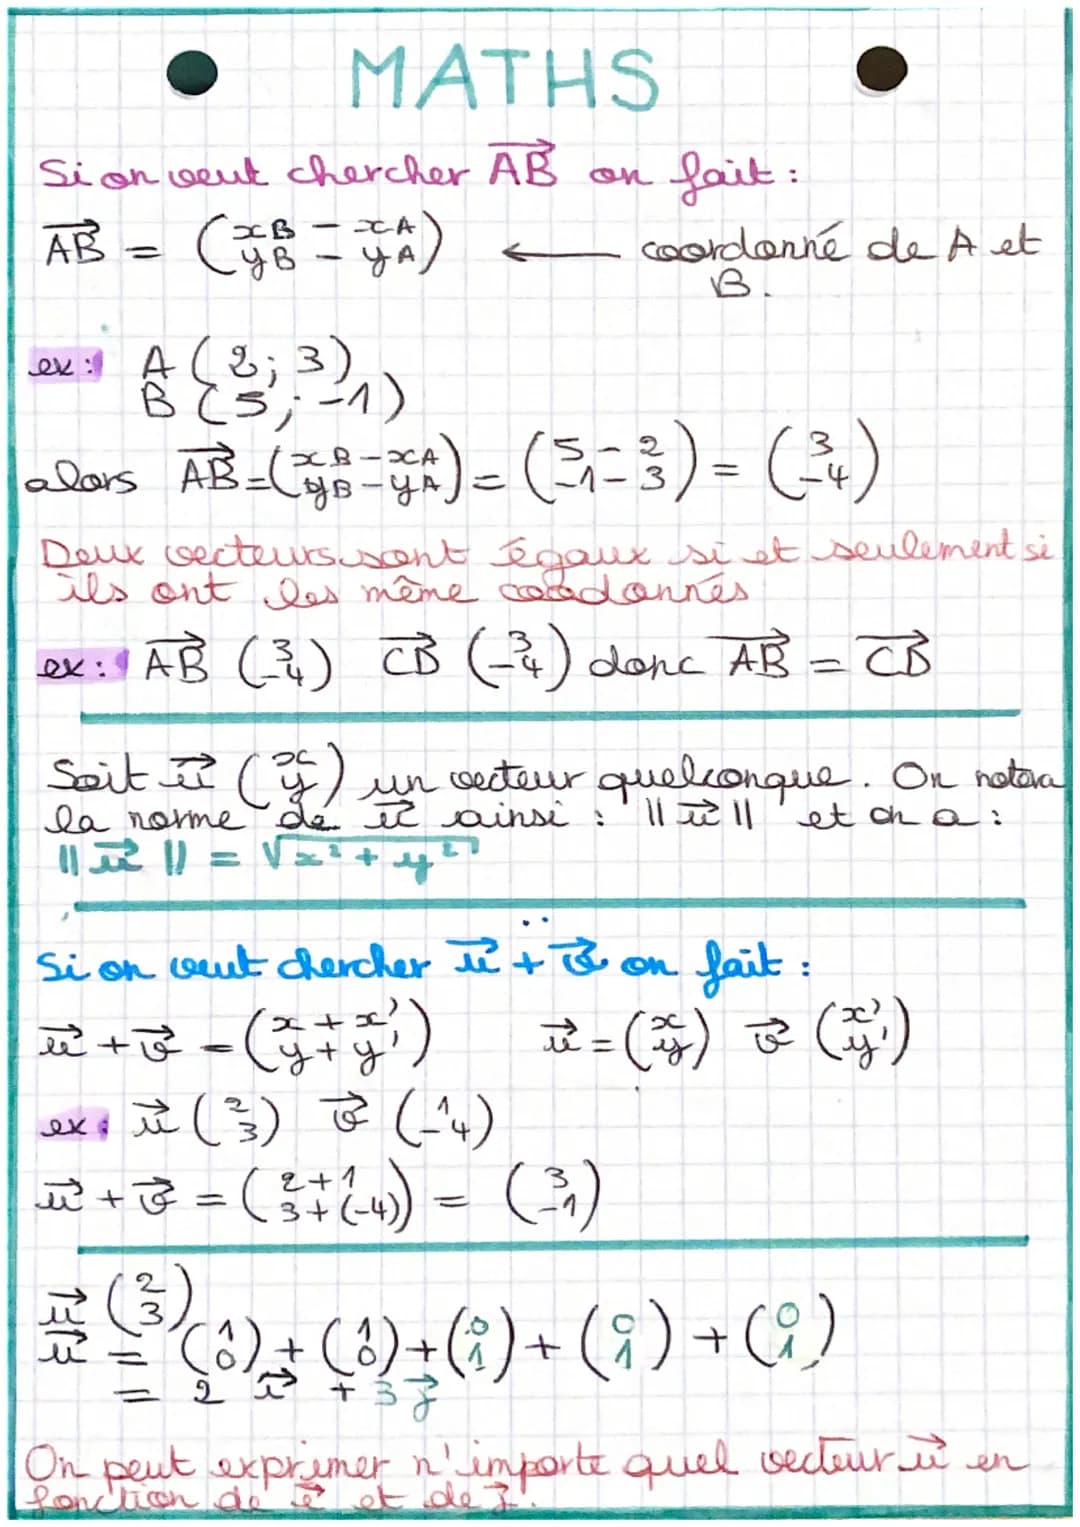 MATHS
Si on veut chercher \overrightarrow{AB} on fait :
\overrightarrow{AB} = \begin{pmatrix} xB - xA \\ yB - yA \end{pmatrix} ← coordonné de A et
B.
ex : A ( 2 ; 3 )
B ( 5 ; -1 )
alors \overrightarrow{AB} = \begin{pmatrix} xB - xA \\ yB - yA \end{pmatrix} = \begin{pmatrix} 5 - 2 \\ -1 - 3 \end{pmatrix} = \begin{pmatrix} 3 \\ -4 \end{pmatrix}
Deux vecteurs sont égaux si et seulement si
ils ont les même coordonnés
ex : \overrightarrow{AB} \begin{pmatrix} 3 \\ -4 \end{pmatrix} \overrightarrow{CD} \begin{pmatrix} 3 \\ -4 \end{pmatrix} donc \overrightarrow{AB} = \overrightarrow{CD}
Soit \vec{u} \begin{pmatrix} x \\ y \end{pmatrix} un vecteur quelconque. On notera
la norme de \vec{u} ainsi : ||\vec{u}|| et on a :
||\vec{u}|| = \sqrt{x² + y²}
Si on veut chercher \vec{u} + \vec{v} on fait :
\vec{u} + \vec{v} = \begin{pmatrix} x + x' \\ y + y' \end{pmatrix} \vec{u} = \begin{pmatrix} x \\ y \end{pmatrix} \vec{v} \begin{pmatrix} x' \\ y' \end{pmatrix}
ex : \vec{u} \begin{pmatrix} 2 \\ 3 \end{pmatrix} \vec{v} \begin{pmatrix} 1 \\ -4 \end{pmatrix}
\vec{u} + \vec{v} = \begin{pmatrix} 2 + 1 \\ 3 + (-4) \end{pmatrix} = \begin{pmatrix} 3 \\ -1 \end{pmatrix}
\vec{u} \begin{pmatrix} 2 \\ 3 \end{pmatrix}
\vec{u} = \begin{pmatrix} 1 \\ 0 \end{pmatrix} + \begin{pmatrix} 1 \\ 0 \end{pmatrix} + \begin{pmatrix} 0 \\ 1 \end{pmatrix} + \begin{pmatrix} 0 \\ 1 \end{pmatrix} + \begin{pmatrix} 0 \\ 1 \end{pmatrix}
= 2 \vec{i} + 3 \vec{j}
On peut exprimer n'importe quel vecteur \vec{u} en
fonction de \vec{i} et de \vec{j}.